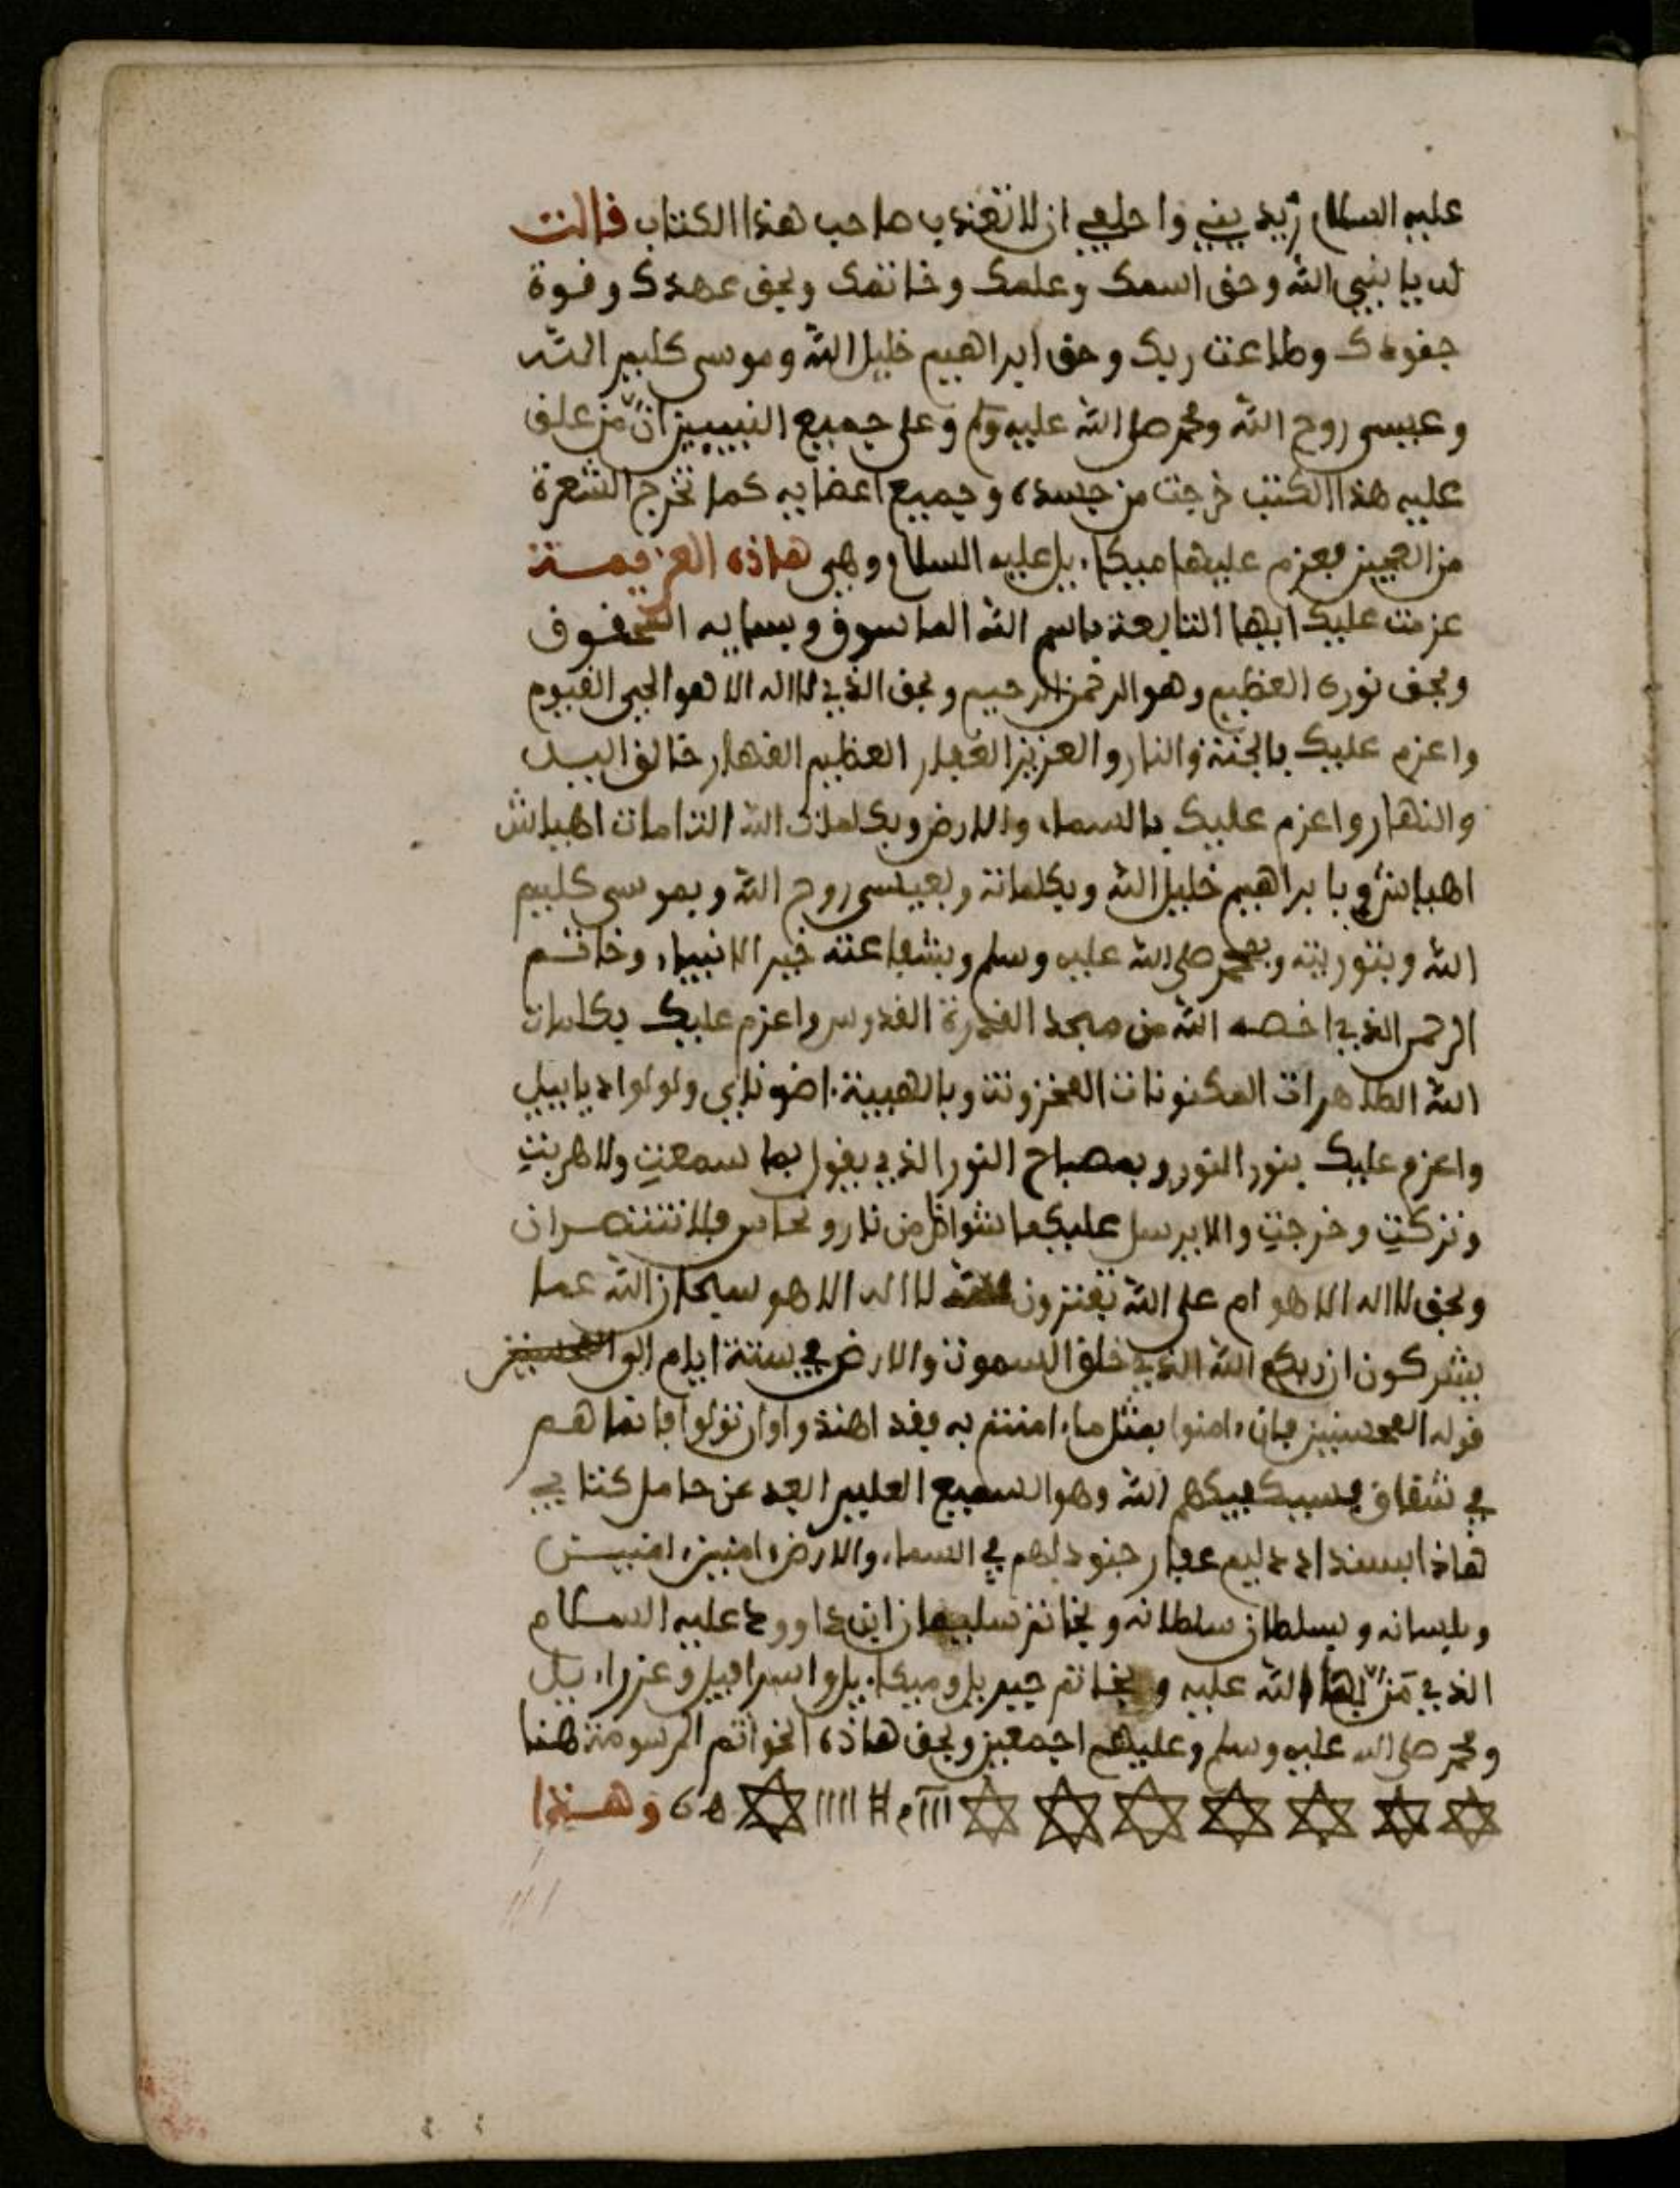 عليه السلام زيديني واحلفي ان لا تعذب صاحب هذا الكتاب فالت
له يا نبي الله وحق اسمك وعلمك وخاتمك وبحق عهدك وقوة
جنودك وطاعت ربك وحق ابراهيم خليل الله وموسى كليم الله
وعيسى روح الله ومحمد صلى الله عليه وسلم وعلى جميع النبيين ان من علق
عليه هذا الكتب خرجت من جسده وجميع اعضايه كما تخرج الشعرة
من العجين فعزم عليها ميكاءيل عليه السلام وهي هاذه العزيمة
عزمت عليك ايها التابعة باسم الله
وبحق نوره العظيم وهو الرحمن الرحيم وبحق الذي لا اله الا هو الحي القيوم
واعزم عليك بالجنة والنار والعزيز الغفار العظيم القهار خالق اليل
والنهار واعزم عليك بالسماء والارض وبكلمات الله التامات اهياش
اهياش وبابراهيم خليل الله وبكلماته وبعيسى روح الله وبموسى كليم
الله وبتوريته وبمحمد صلى الله عليه وسلم وبشفاعته خير الانبياء وخاتم
الذي اخصه الله من القدرة القدوس واعزم عليك بكلمات
الله الطاهرات المكنونات المخزونة وبالهيبة
واعزم عليك بنور النور وبمصباح النور الذي يقول بما سمعت ولا هربت
وتركت وخرجت والا يرسل عليكما شواظ من نار ونحاس فلا تنتصران
وبحق لا اله الا هو ام على الله تفترون لا اله الا هو سبحان الله عما
يشركون ان ربكم الله الذي خلق السموت والارض في ستة ايام الى المحسنين
قوله المحسنين فان ءامنوا بمثل ما ءامنتم به فقد اهتدوا وان تولوا فانما هم
في شقاق فسيكفيكهم الله وهو السميع العليم ابعد عن حامل كتابي
هاذا جنود لهم في السماء والارض ءامين ءامين
وبلسانه وبسلطان سلطانه وبخاتم سليمان ابن داوود عليه السلام
الذي من بها الله عليه وبخاتم جبريل وميكاءيل واسرافيل وعزراءيل
ومحمد صلى الله عليه وسلم وعليهم اجمعين وبحق هاذه الخواتم المرسومة هنا
وهذا